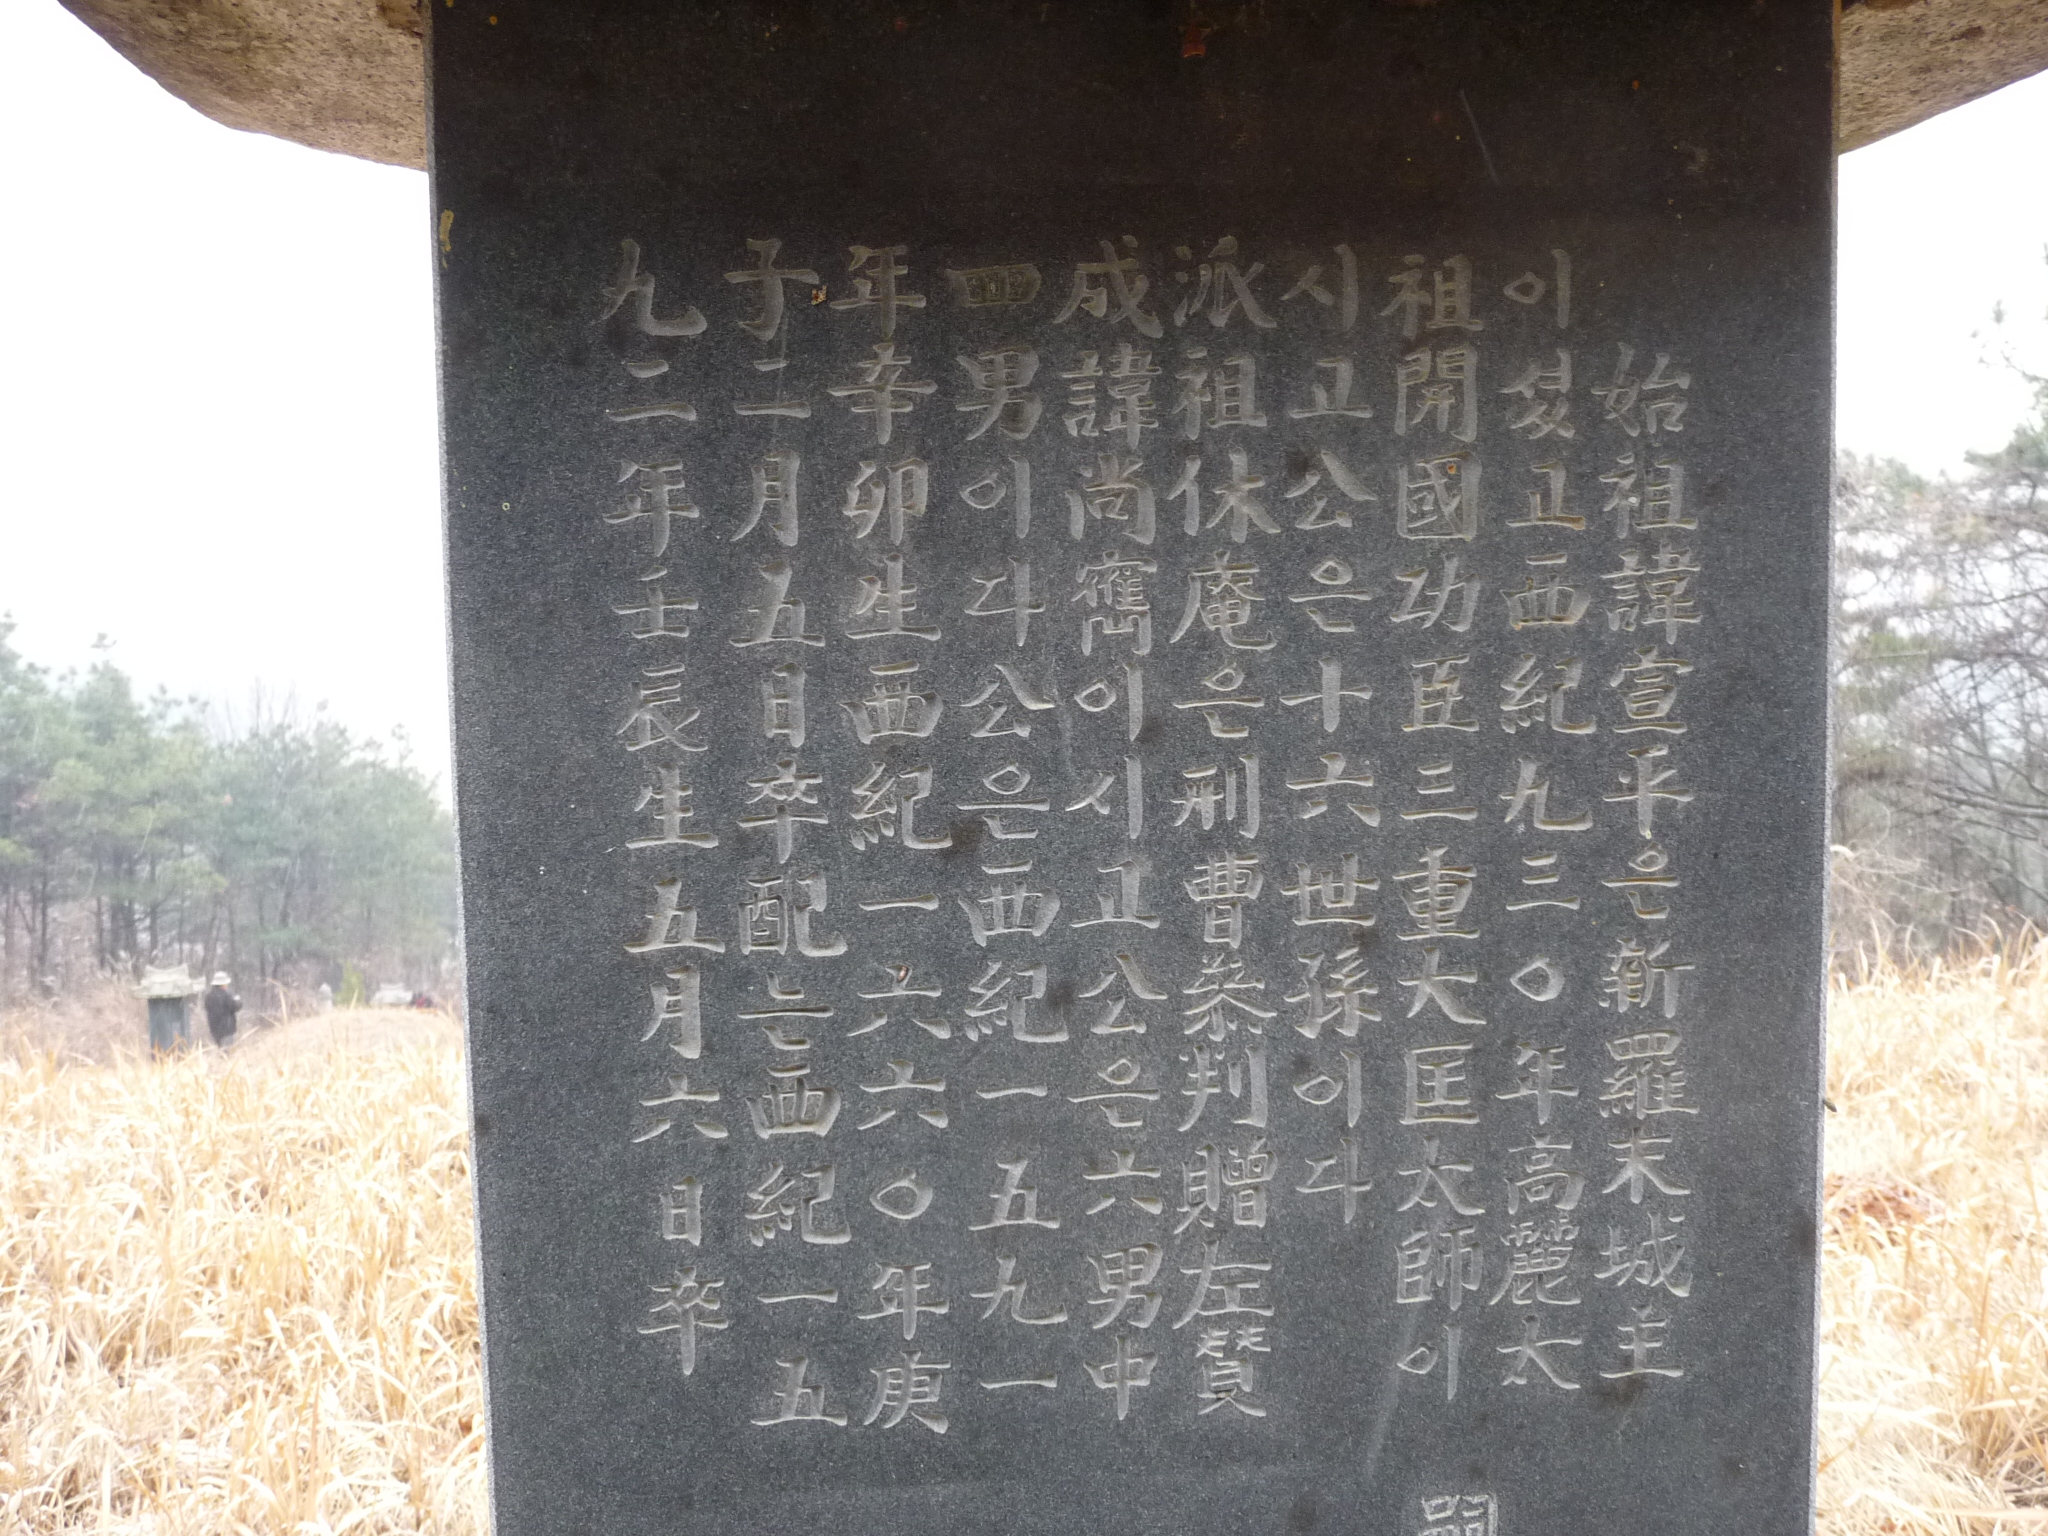 始祖諱宣平은新羅末城主
이셨고西紀九三○年高麗太
祖開國功臣三重大匡太師이
시고公은十六世孫이다
派祖休庵은刑曹叅判贈左贊
成諱尚寯이시고公은六男中
四男이다公은西紀一五九一
年辛卯生西紀一六六○年庚
子二月五日卒配는西紀一五
九二年壬辰生五月六日卒
嗣